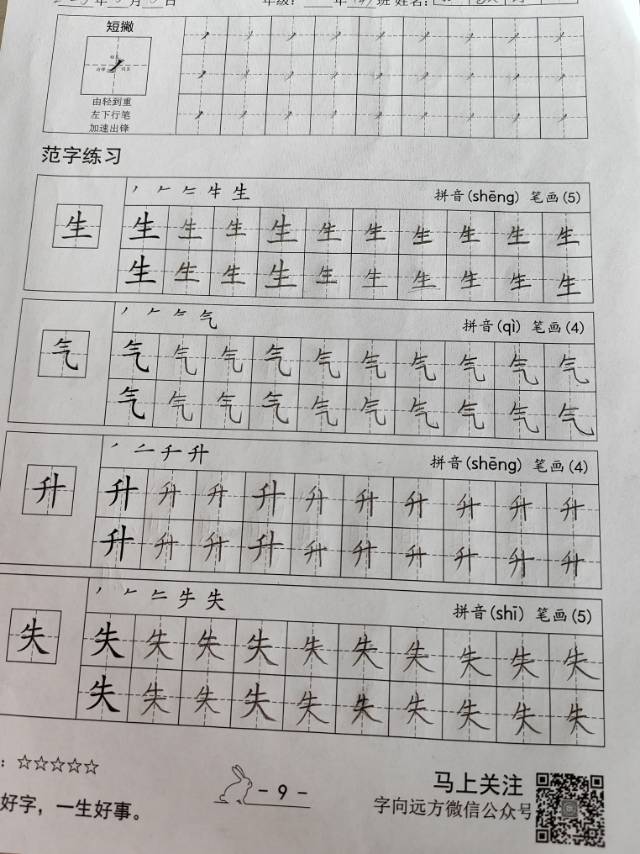 年 月 日 年级: 年 班 姓名:
短撇
由轻到重
左下行笔
加速出锋
范字练习
生 拼音(shēng) 笔画(5)
生 生 生 生 生 生 生 生 生 生 生
生 生 生 生 生 生 生 生 生 生
气 拼音(qì) 笔画(4)
气 气 气 气 气 气 气 气 气 气 气
气 气 气 气 气 气 气 气 气 气
升 拼音(shēng) 笔画(4)
升 升 升 升 升 升 升 升 升 升 升
升 升 升 升 升 升 升 升 升 升
失 拼音(shī) 笔画(5)
失 失 失 失 失 失 失 失 失 失 失
失 失 失 失 失 失 失 失 失 失
: ☆☆☆☆☆
好字，一生好事。
- 9 -
马上关注
字向远方微信公众号